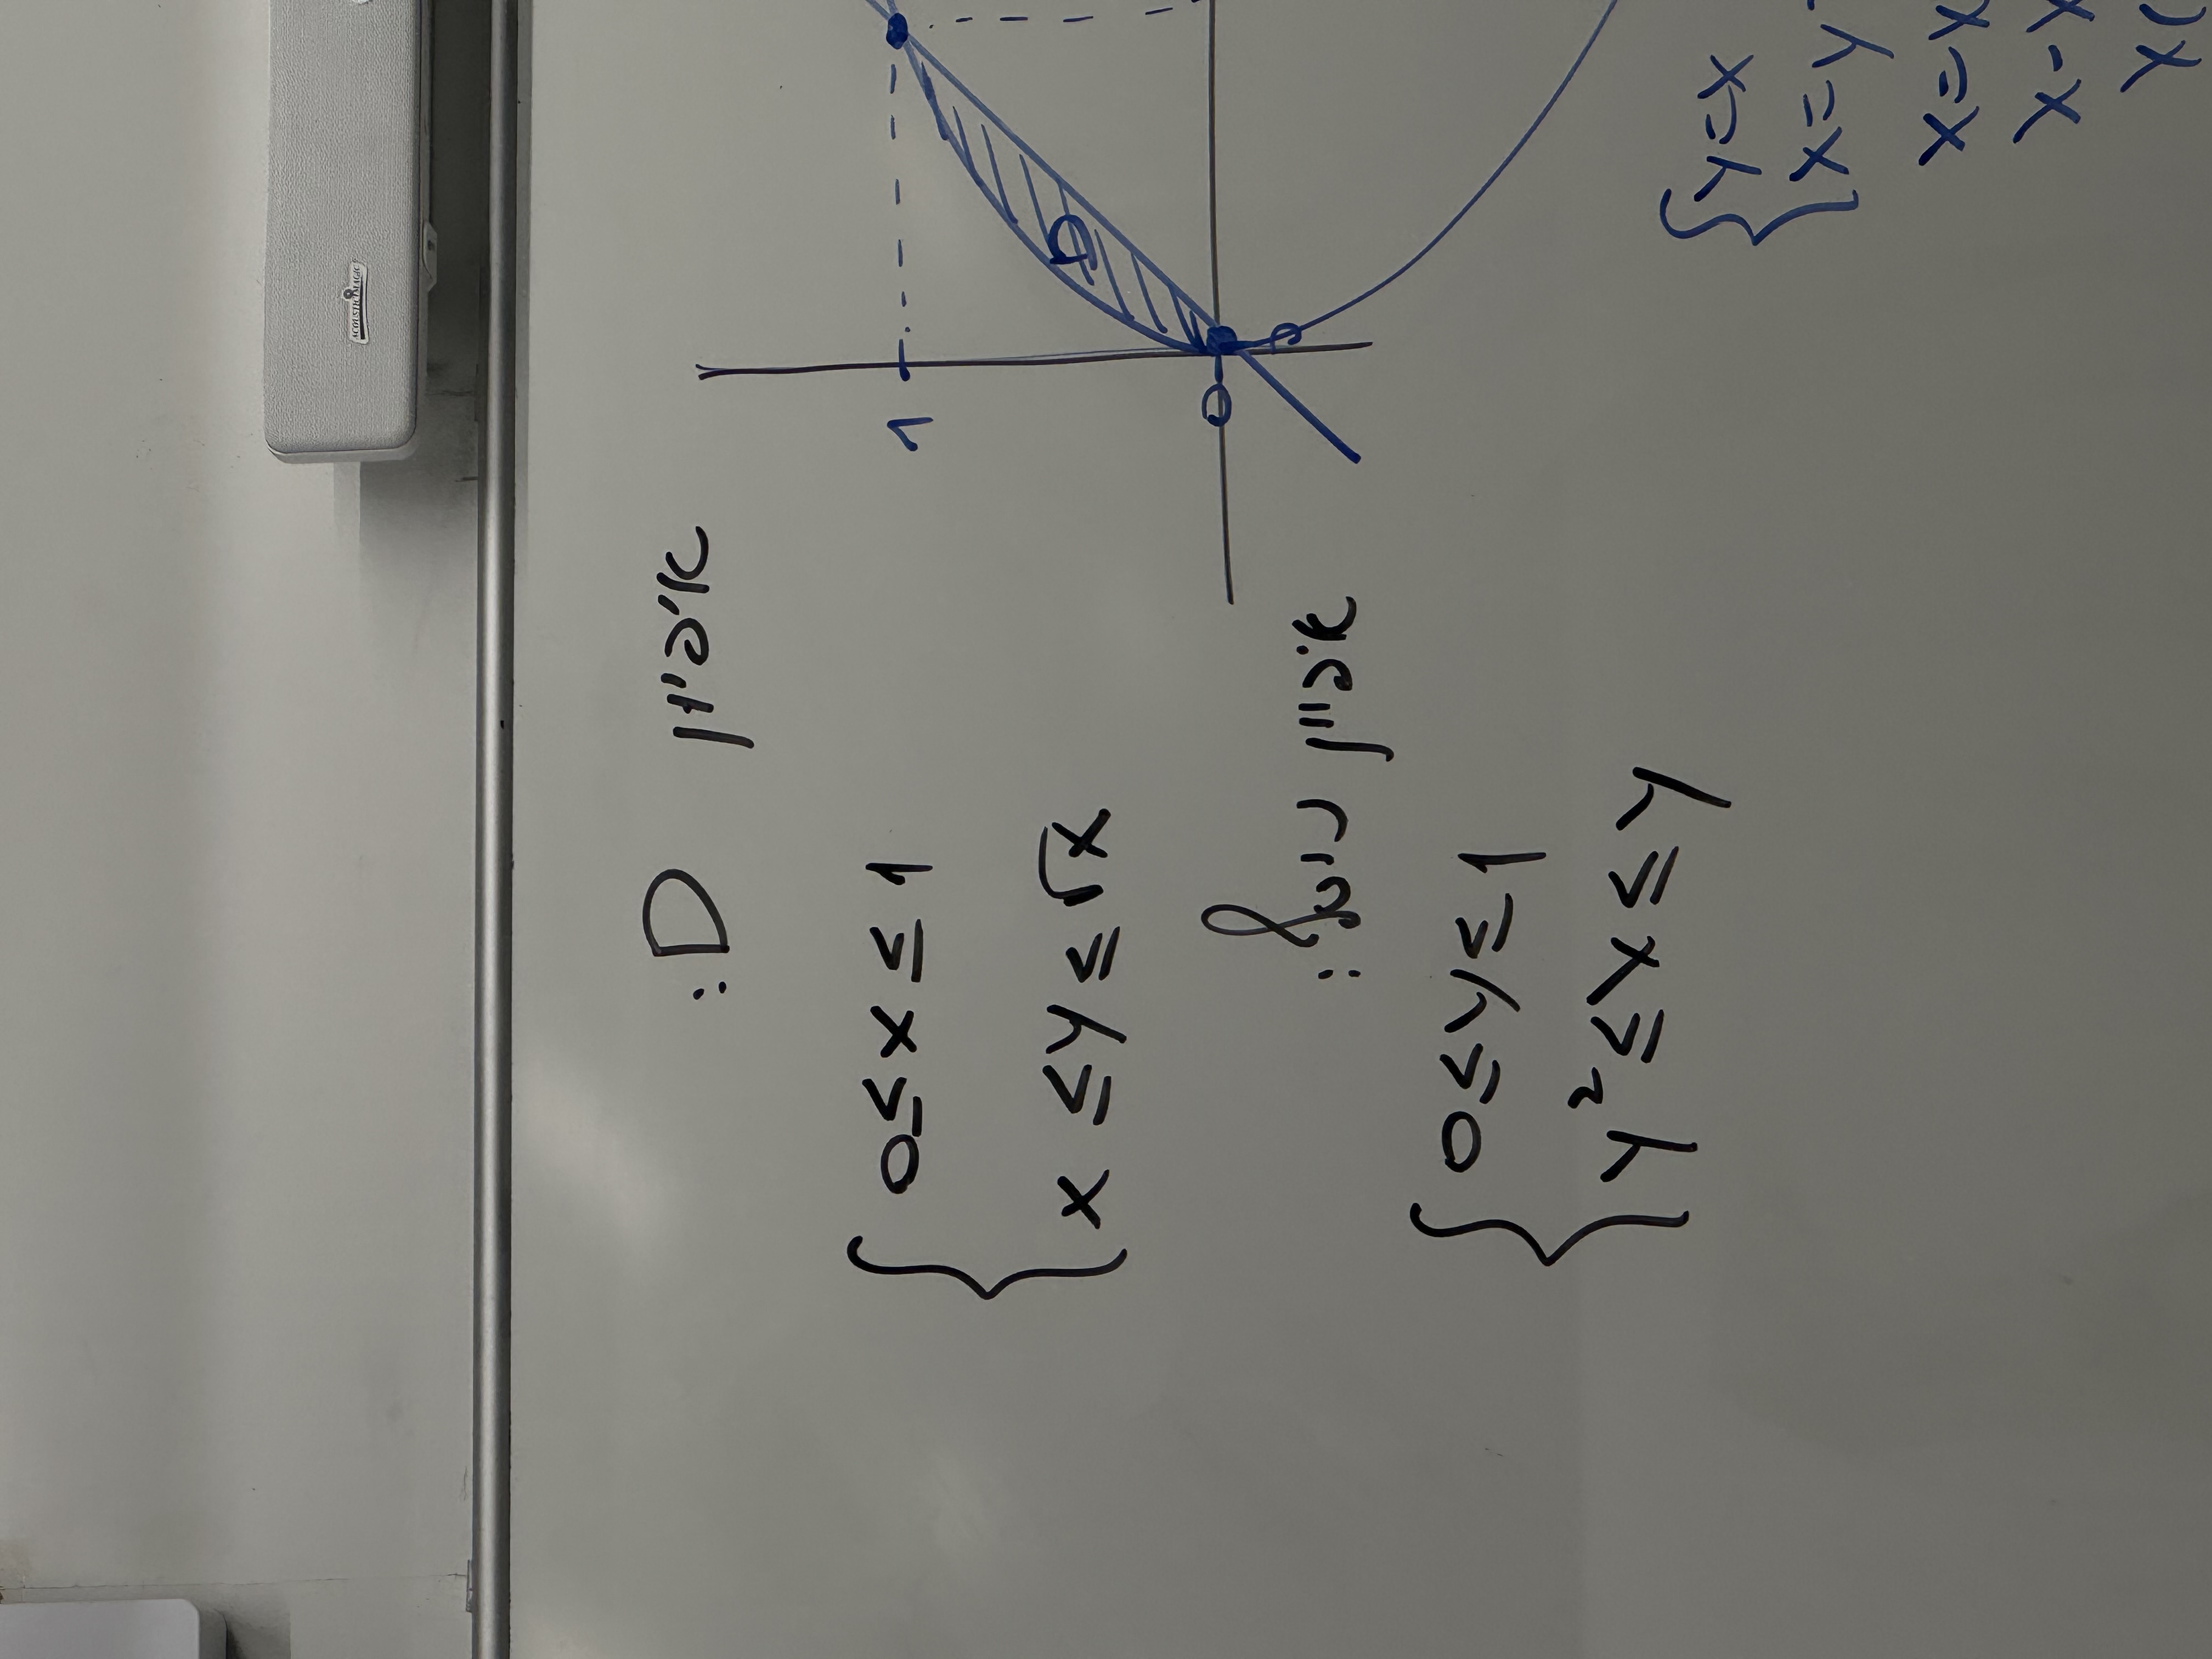 ACOUSTIC MAGIC
אפיון D:
{ 0 ≤ x ≤ 1
x ≤ y ≤ √x
אפיון נוסף:
{ 0 ≤ y ≤ 1
y² ≤ x ≤ y
1
D
0
0
{ y=x
x=y
x=x
x-x
x(